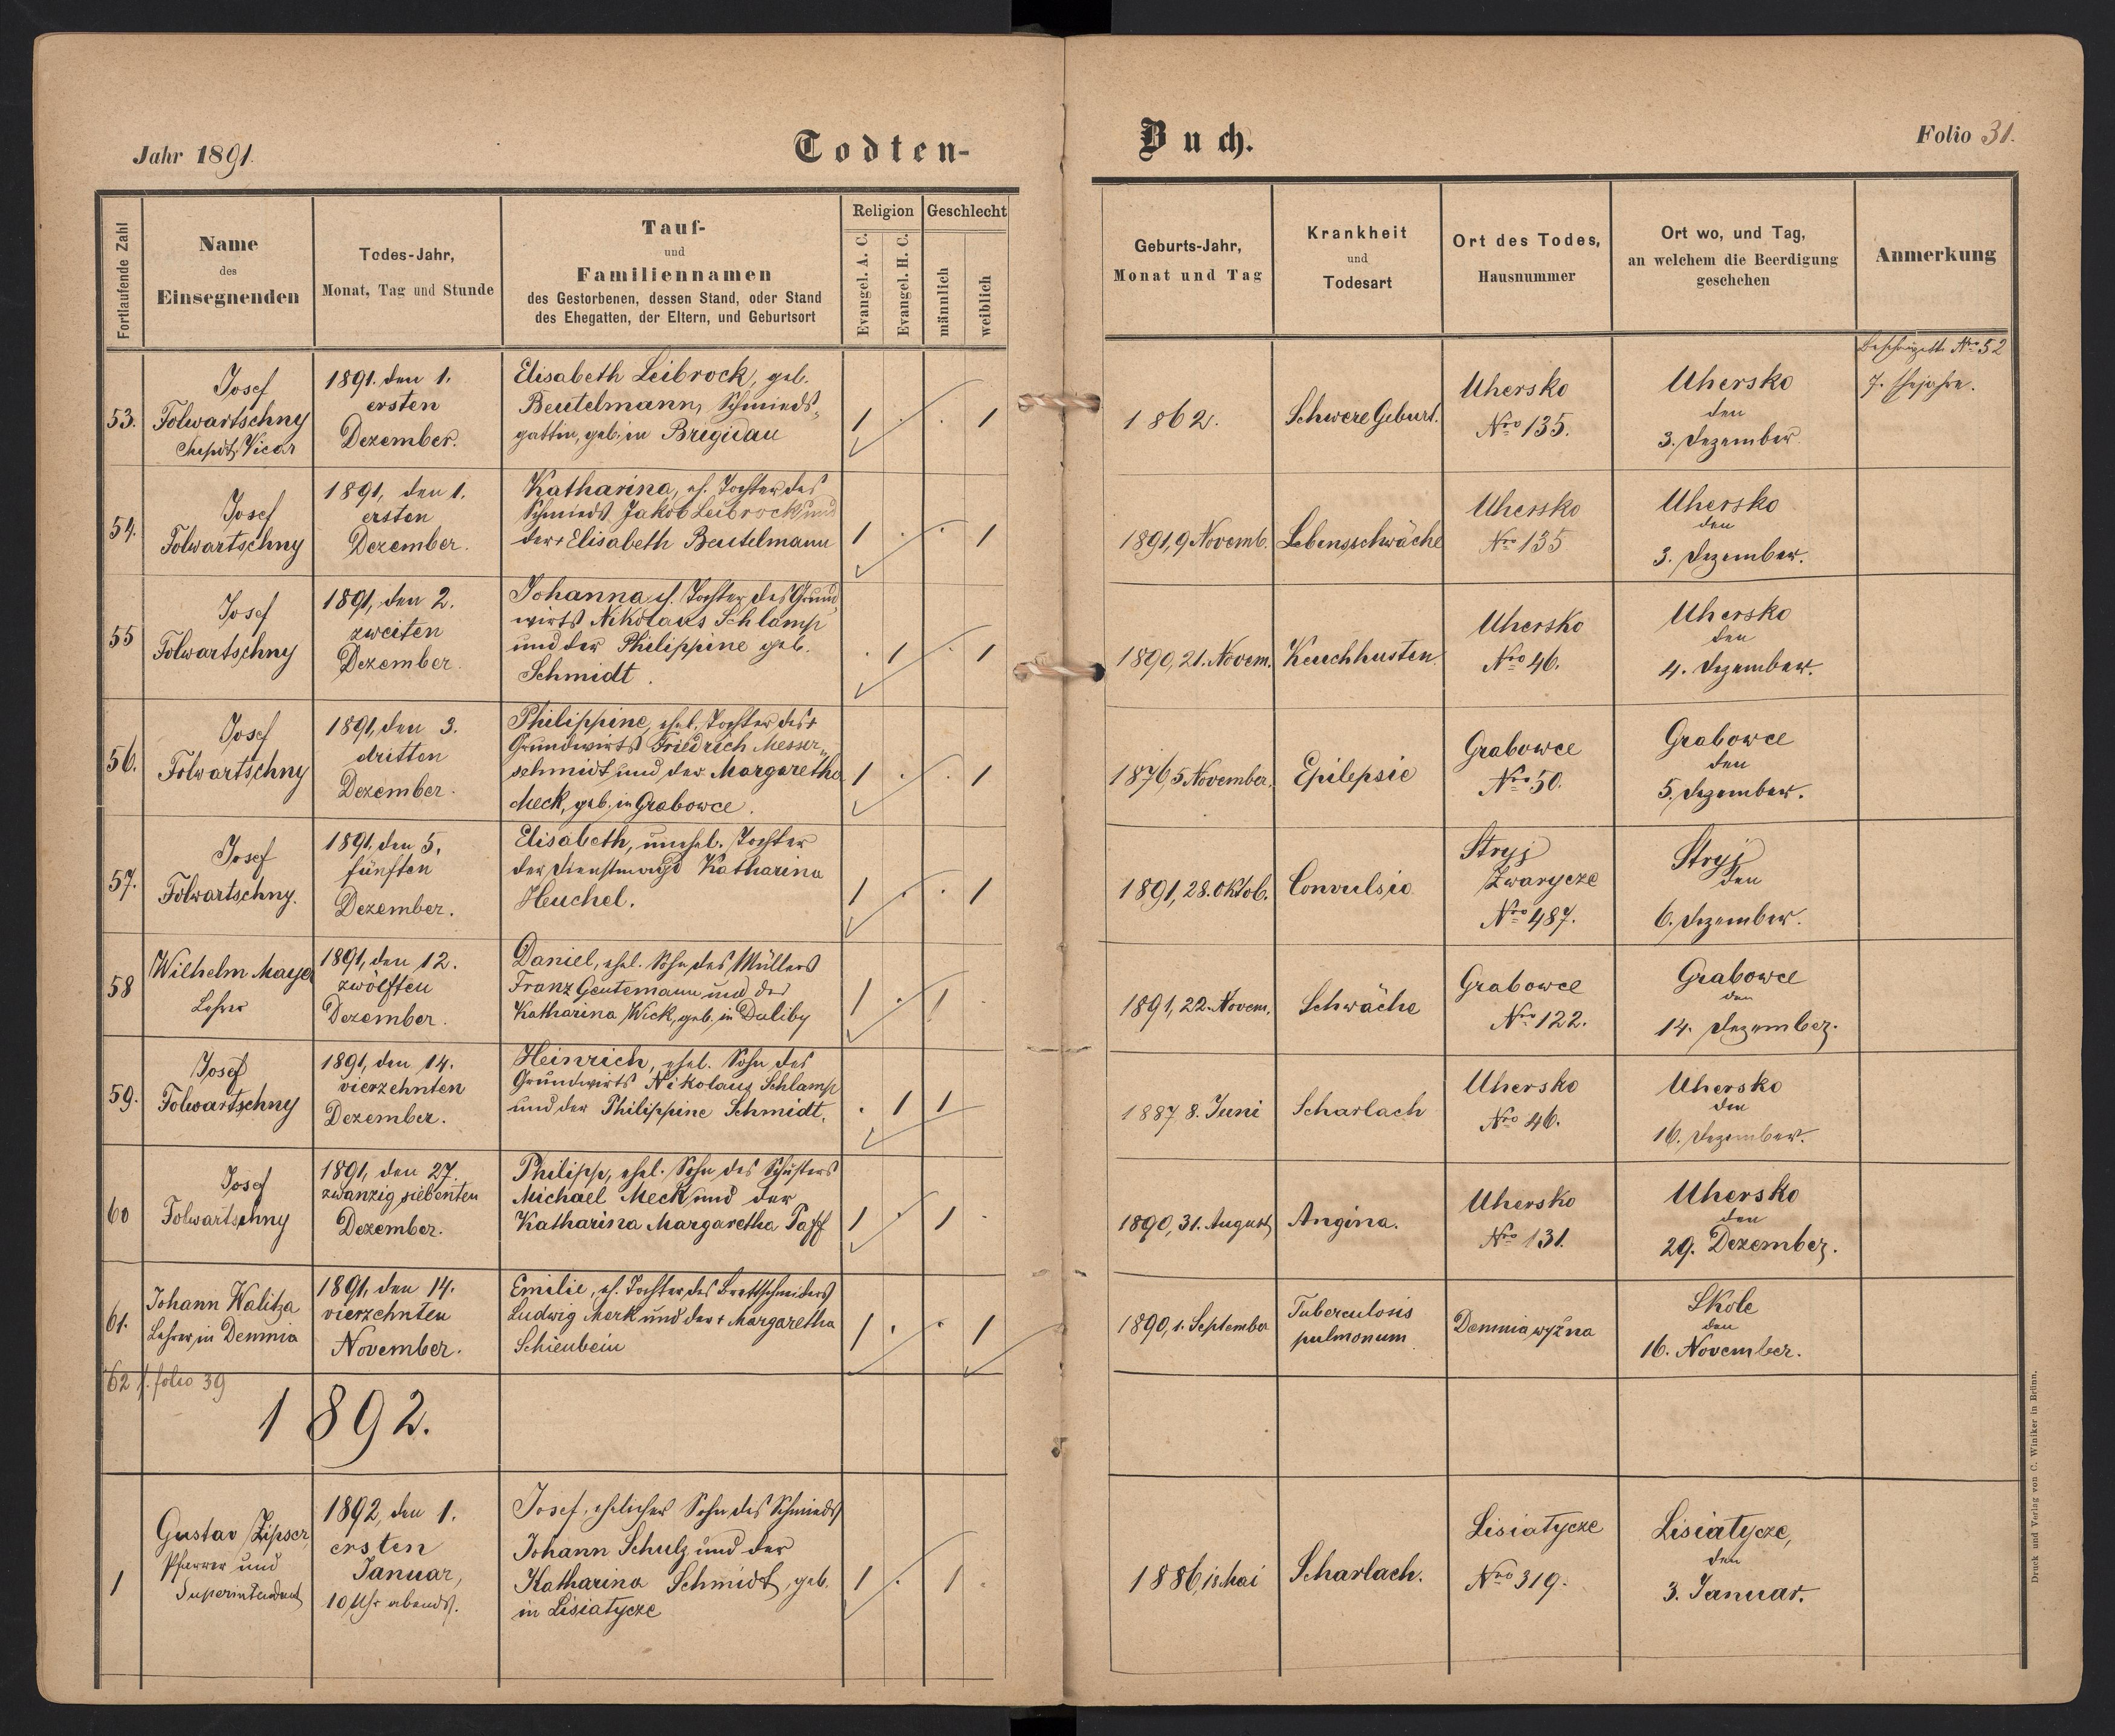 Jahr 1891.
Todten-
Buch.
Folio 31.
Fortlaufende Zahl
Name
des
Einsegnenden
Todes-Jahr,
Monat, Tag und Stunde
Tauf-
und
Familiennamen
des Gestorbenen, dessen Stand, oder Stand
des Ehegatten, der Eltern, und Geburtsort
Religion
Evangel. A. C.
Evangel. H. C.
Geschlecht
männlich
weiblich
Geburts-Jahr,
Monat und Tag
Krankheit
und
Todesart
Ort des Todes,
Hausnummer
Ort wo, und Tag,
an welchem die Beerdigung
geschehen
Anmerkung
53.
Josef
Folwartschny
Vicar
1891. den 1.
ersten
Dezember.
Elisabeth Leibrock, geb.
Beutelmann, Schmieds-
gattin, geb. in Brigidau
1 . . 1
1862.
Schwere Geburt.
Uhersko
Nro 135.
Uhersko
den
3. Dezember.
Nro 52
7. Ehejahre.
54.
Josef
Folwartschny
1891, den 1.
ersten
Dezember.
Katharina, eh. Tochter des
Schmieds Jakob Leibrock und
der + Elisabeth Beutelmann
1 . . 1
1891, 9 Novemb.
Lebensschwäche
Uhersko
Nro 135
Uhersko
den
3. Dezember.
55
Josef
Folwartschny
1891, den 2.
zweiten
Dezember.
Johanna eh. Tochter des Grund
wirts Nikolaus Schlamp
und der Philippine geb.
Schmidt.
. 1 . 1
1890, 21. Novem.
Keuchhusten.
Uhersko
Nro 46.
Uhersko
den
4. Dezember.
56.
Josef
Folwartschny
1891, den 3.
dritten
Dezember.
Philippine, ehel. Tochter des +
Grundwirts Friedrich Messer-
schmidt und der Margaretha
Meck, geb. in Grabowce.
1 . . 1
1876, 5 November.
Epilepsie
Grabowce
Nro 50.
Grabowce
den
5. Dezember.
57.
Josef
Folwartschny.
1891. den 5.
fünften
Dezember.
Elisabeth, unehel. Tochter
der Dienstmagd Katharina
Heuchel.
1 . . 1
1891, 28. Oktob.
Convulsio
Stryj
Zwarycze
Nro 487.
Stryj
den
6. Dezember.
58
Wilhelm Mayer
Lehrer
1891, den 12.
zwölften
Dezember.
Daniel, ehel. Sohn des Müllers
Franz Gentemann und der
Katharina Wick, geb. in Duliby
1 . 1 .
1891, 22. Novem.
Schwäche
Grabowce
Nro 122.
Grabowce
den
14. Dezember.
59.
Josef
Folwartschny
1891, den 14.
vierzehnten
Dezember.
Heinrich, ehel. Sohn des
Grundwirts Nikolaus Schlamp
und der Philippine Schmidt.
. 1 1
1887 8. Juni
Scharlach
Uhersko
Nro 46.
Uhersko
den
16. Dezember.
60
Josef
Folwartschny
1891, den 27.
zwanzig siebenten
Dezember.
Philipp, ehel. Sohn des Schusters
Michael Meck und der
Katharina Margaretha Paff
1 . 1 .
1890, 31. August
Angina.
Uhersko
Nro 131.
Uhersko
den
29. Dezember.
61.
Johann Walitza
Lehrer in Demnia
1891, den 14.
vierzehnten
November.
Emilie, eh. Tochter des Brettschneiders
Ludwig Merk und der + Margaretha
Schienbein
1 . . 1
1890, 1. September
Tuberculosis
pulmonum
Demnia wyžna
Skole
den
16. November.
62 f. folio 39
1892.
1
Gustav Zipser,
Pfarrer und
Superintendent
1892, den 1.
ersten
Januar,
10 Uhr abends.
Josef, ehelicher Sohn des Schmieds
Johann Schulz und der
Katharina Schmidt, geb.
in Lisiatycze
1 . 1 .
1886, 18. Mai
Scharlach.
Lisiatycze
Nro 319.
Lisiatycze,
den
3. Januar.
Druck und Verlag von C. Winiker in Brünn.